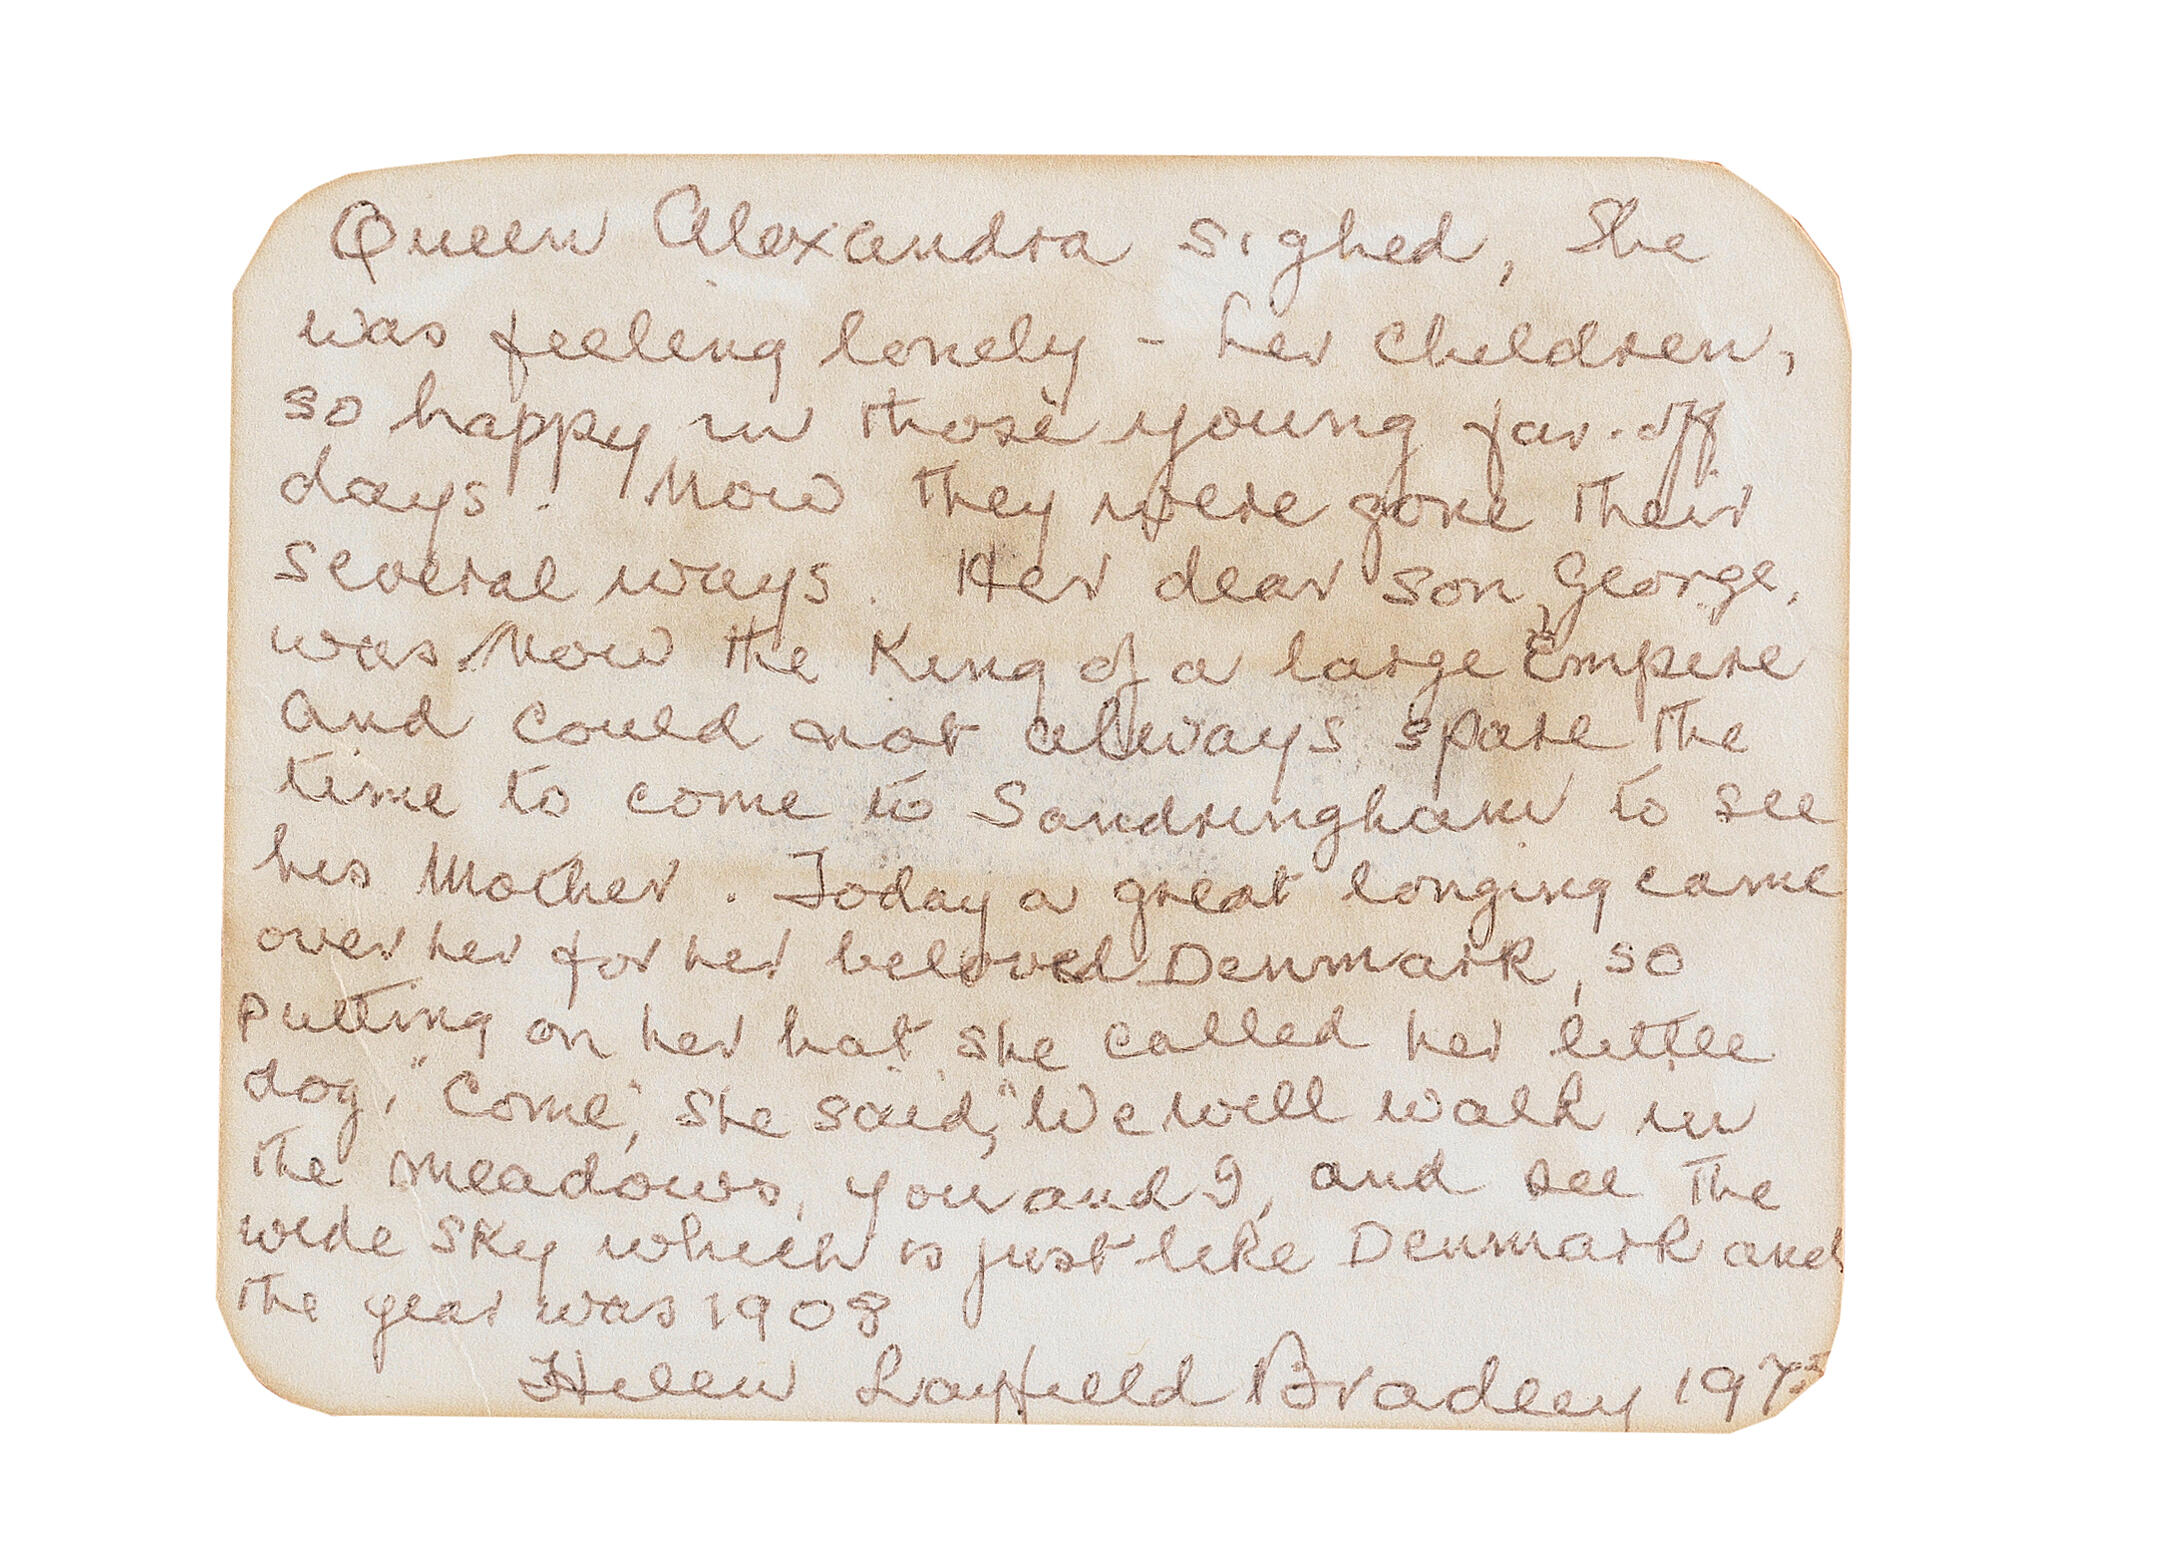 Queen Alexandra sighed, She
was feeling lonely - her children,
so happy in those young far-off
days. Now they were gone their
several ways. Her dear son, George,
was Now the King of a large Empire
and could not always spare the
time to come to Sandringham to see
his Mother. Today a great longing came
over her for her beloved Denmark, so
putting on her hat she called her little
dog, "Come", she said, "We will walk in
the meadows, you and I, and see the
wide sky which is just like Denmark and
the year was 1908
Helen Layfield Bradley